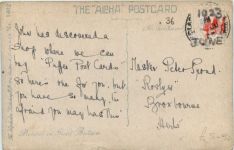 THE "ALPHA" POSTCARD
36
1923
JUNE
John has discovered a
shop where we can
buy "Puffer Post Cards"
so here's one for you, but
you have so many, I'm
afraid you may has this
Master Peter Broad
Broxbourne
Herts
Printed in Great Britain